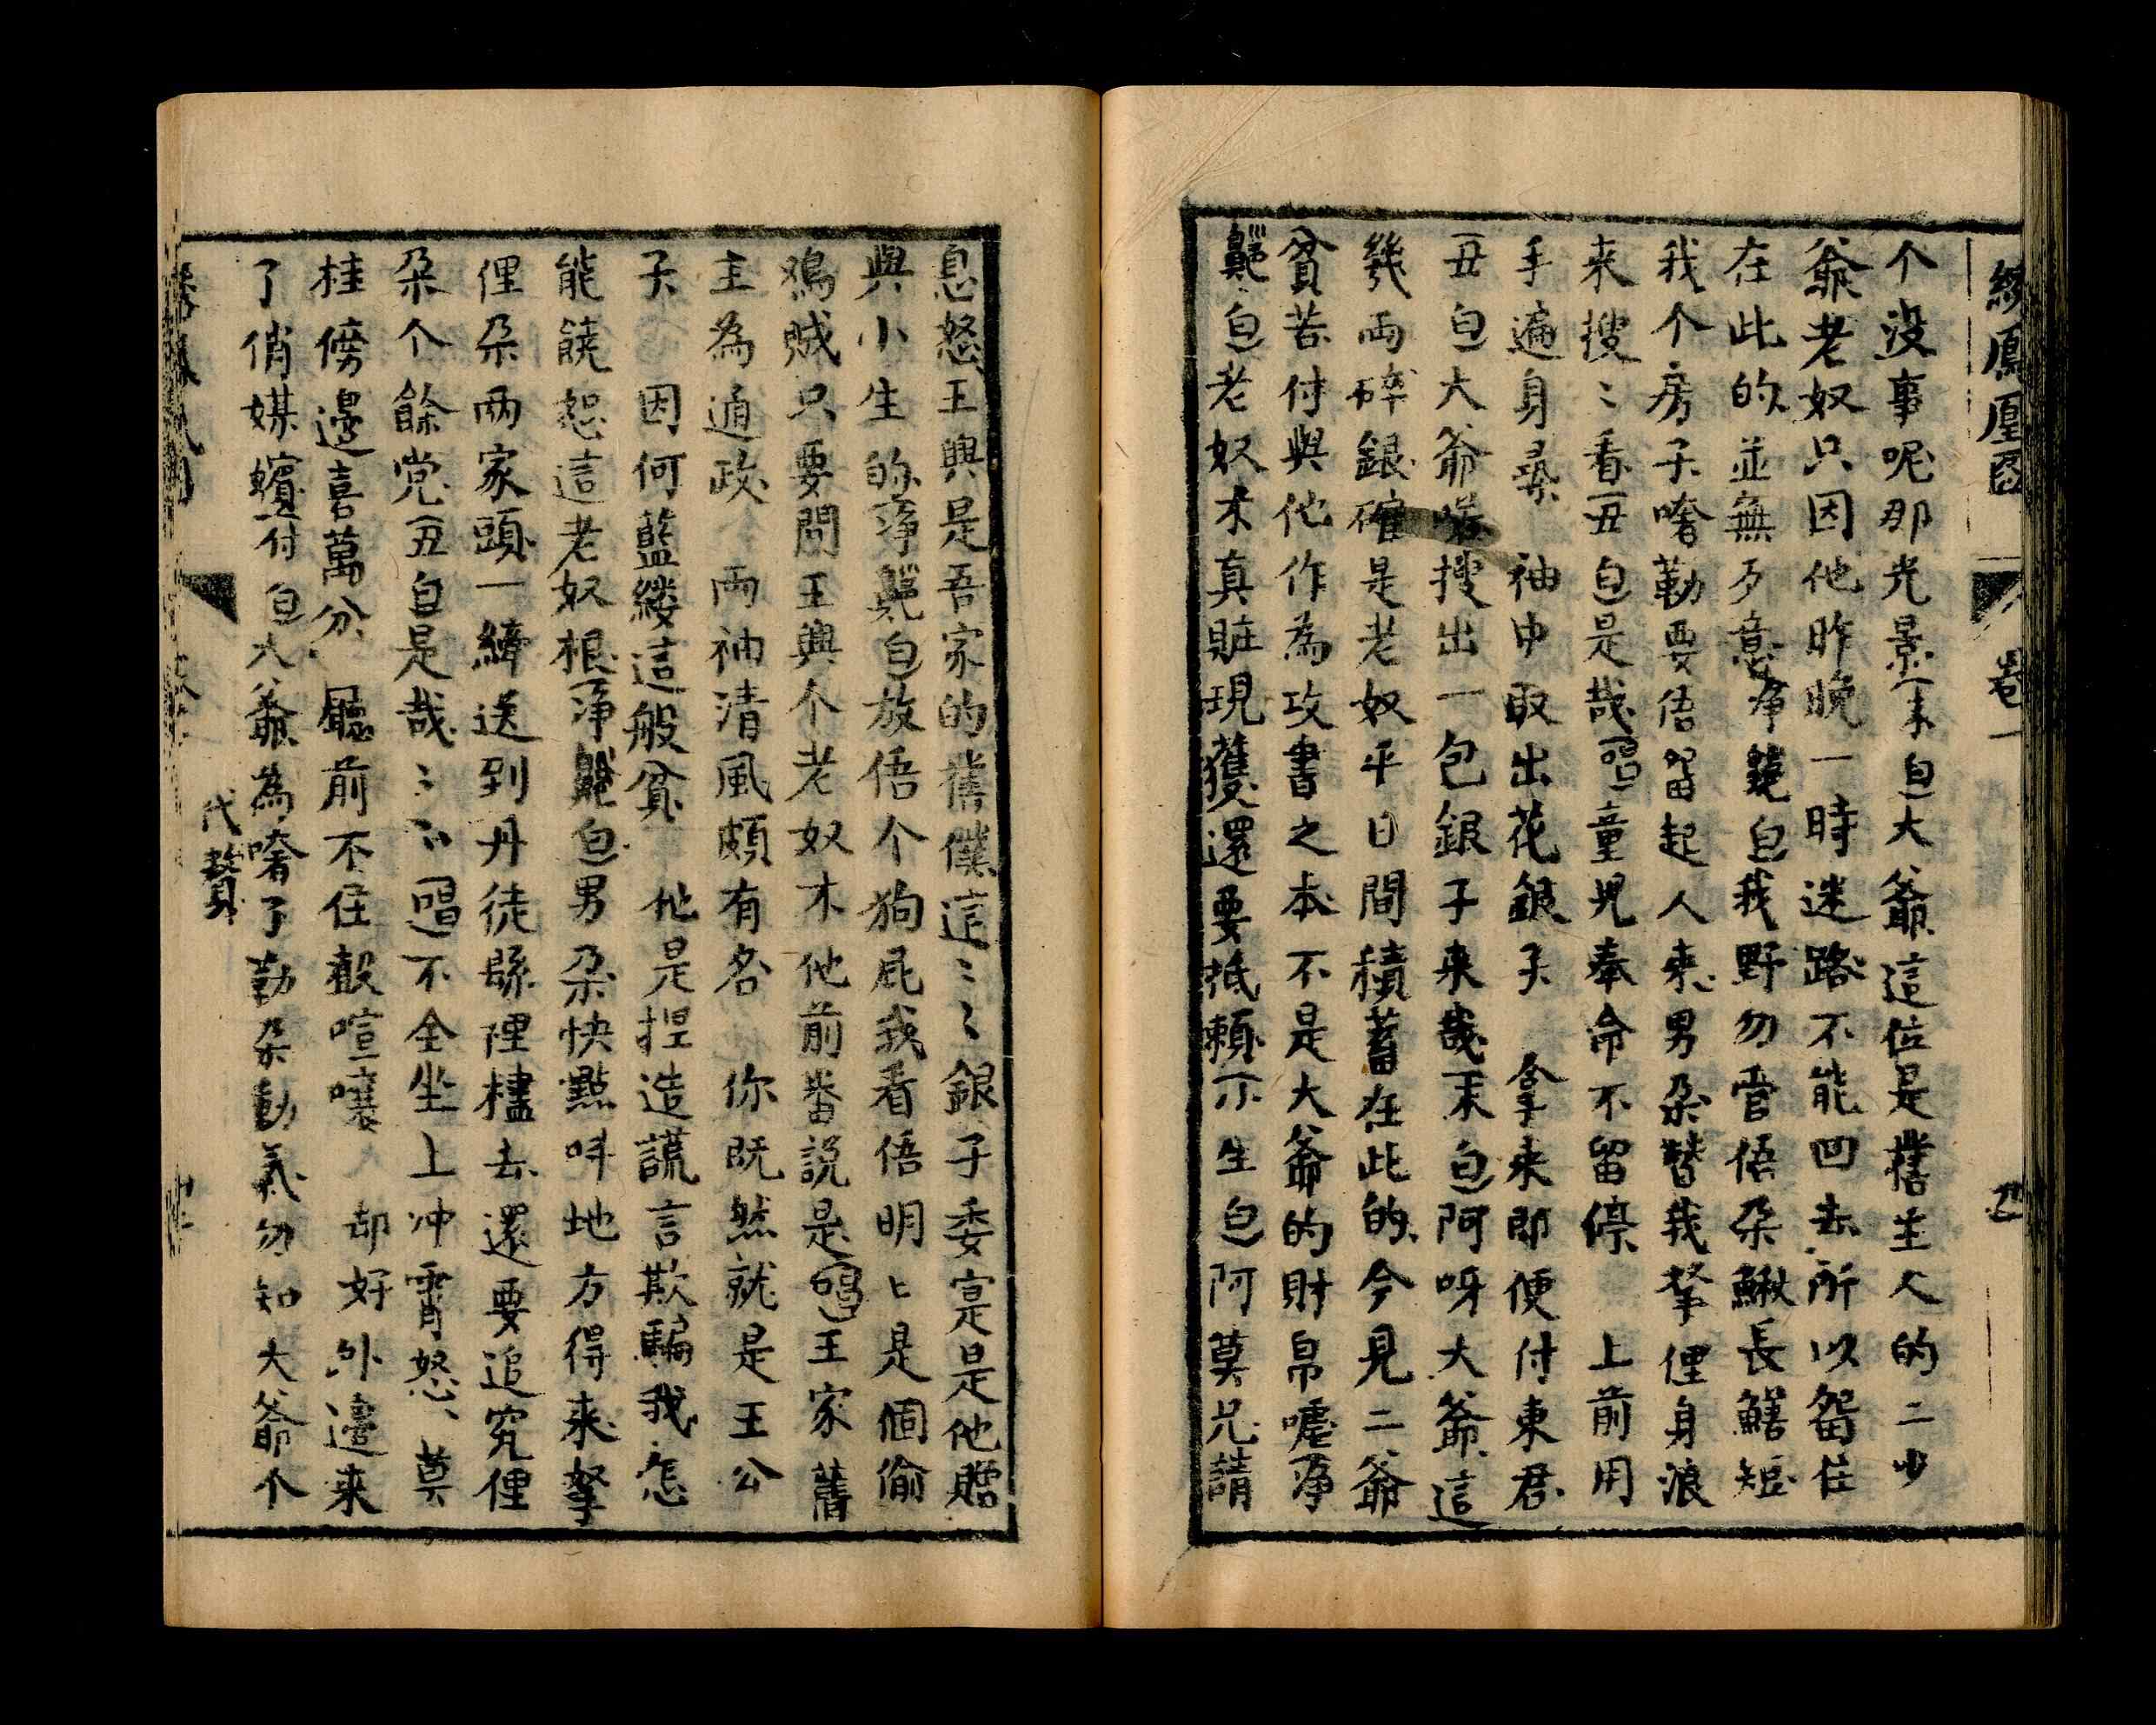 繡鳳凰圖 卷一
个没事呢那光景末白大爺這位是舊主人的二少
爺老奴只因他昨晚一時迷路不能囬去所以畱住
在此的並無歹意淨白我野勿管俉朶鰍長鱔短
我个房子喀勒要俉畱起人来男朶替我拏俚身浪
来搜〻看丑白是哉唱童児奉命不留停 上前用
手遍身尋 袖中取出花銀子 拿来即便付東君
丑白大爺喏搜出一包銀子来哉末白阿呀大爺這
幾両碎銀確是老奴平日間積蓄在此的今見二爺
貧苦付與他作為攻書之本不是大爺的財帛嚜淨
白老奴才真贓現獲還要抵賴不生白阿莫兄請
息怒王興是吾家的舊僕這〻〻銀子委寔是他贈
與小生的淨白放俉个狗屁我看俉明〻是個偷
鳮賊只要問王興个老奴才他前畨説是唱王家舊
主為通政 両袖清風頗有名 你既然就是王公
子 因何藍縷這般貧 他是揑造謊言欺騙我 怎
能饒恕這老奴根淨白男朶快點呌地方得来拏
俚朶両家頭一繂送到丹徒縣裡櫨去還要追究俚
朶个餘党丑白是哉〻〻唱不全坐上冲霄怒 莫
桂傍邊喜萬分 㕔前不住聲喧嚷 却好外邊来
了俏媒 付白大爺為喀了勒朶動氣勿知大爺个
代贅